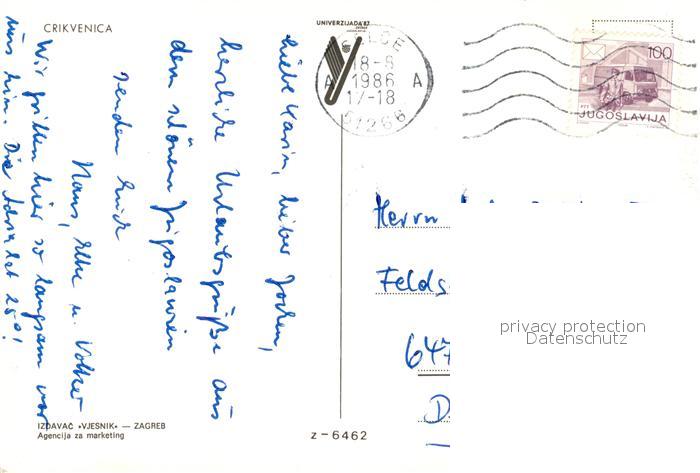 CRIKVENICA
UNIVERZIJADA'87
SELCE
18-8
A 1986 A
17-18
51266
100
PTT
JUGOSLAVIJA
Liebe Karin, lieber Jochen,
herzliche Urlaubsgrüße aus
dem schönen Jugoslawien
senden Euch
Hans, Elke u. Volker
Wir grillen hier so langsam vor
uns hin. Die Adria hat 25°!
Herrn
Felds
647
D
privacy protection
Datenschutz
IZDAVAČ »VJESNIK« — ZAGREB
Agencija za marketing
z-6462